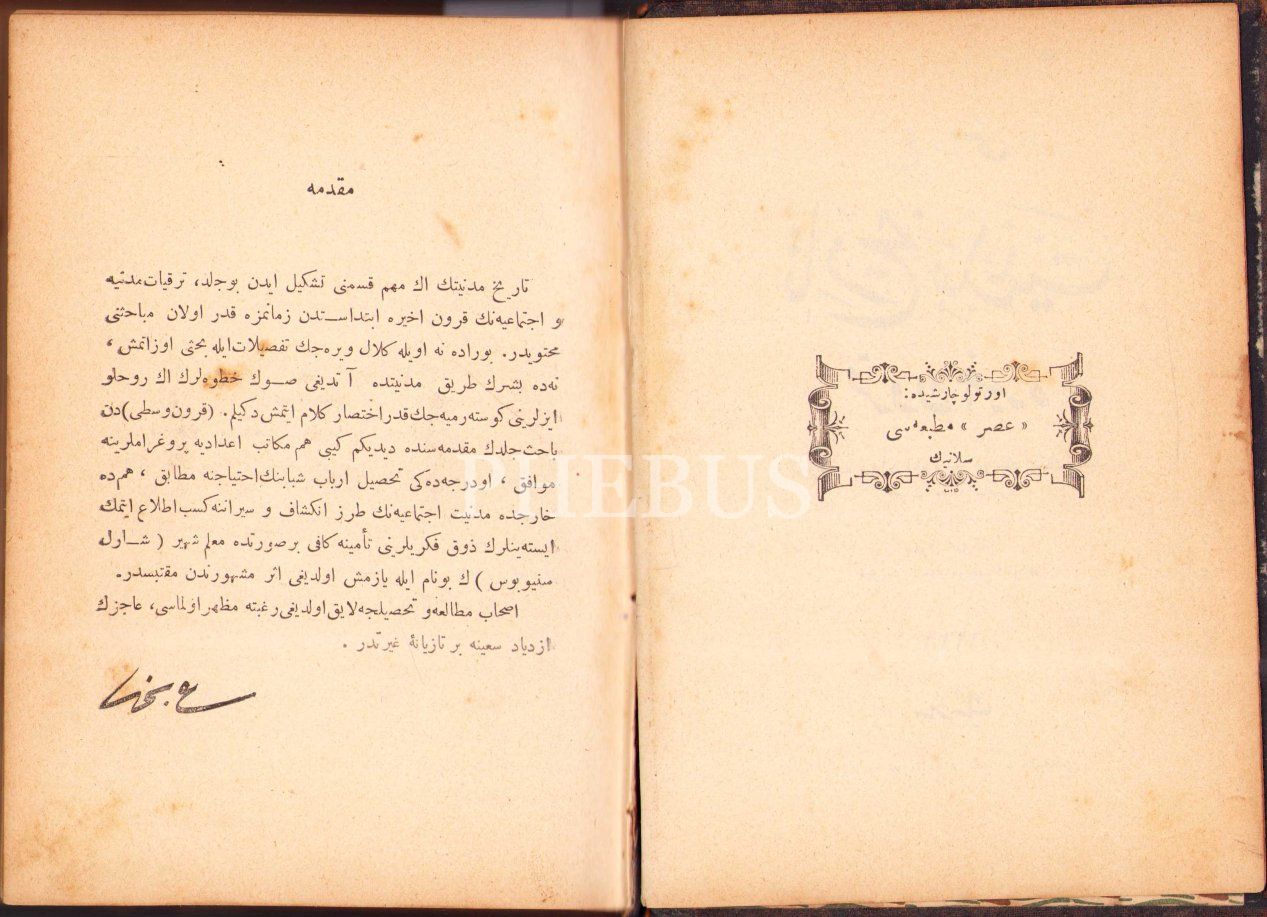 اورتولو چارشیده:
« عصر » مطبعه‌سی
سلانیك
مقدمه
تاریخ مدنیتك اك مهم قسمنی تشكیل ایدن بوجلد، ترقیات مدنیه
و اجتماعیه‌نك قرون اخیره ابتداسـندن زمانمزه قدر اولان مباحثنی
محتویدر. بوراده نه اویله كلال ویره‌جك تفصیلات ایله بحثی اوزاتمش ،
نه‌ده بشرك طریق مدنیتده آتدیغی صـوك خطوه‌لرك اك روحلو
ایزلرینی كوسته‌رمیه‌جك قدر اختصار كلام ایتمش دكیلم. (قرون وسطی) دن
باحث جلدك مقدمه‌سنده دیدیكم كیبی هم مكاتب اعدادیه پروغراملرینه
موافق ، اودرجه‌ده‌كی تحصیل ارباب شبابنك احتیاجنه مطابق ، هم‌ده
خارجده مدنیت اجتماعیه‌نك طرز انكشاف و سیراننه كسب اطلاع ایتمك
ایسته‌ینلرك ذوق فكریلرینی تأمینه كافی برصورتده معلم شهیر ( شـارل
سنیوبوس ) ك بونام ایله یازمش اولدیغی اثر مشهورندن مقتبسدر.
اصحاب مطالعه و تحصیلجه لایق اولدیغی رغبته مظهر اولماسی، عاجزك
ازدیاد سعینه بر تازیانهٔ غیرتدر .
PHEBUS